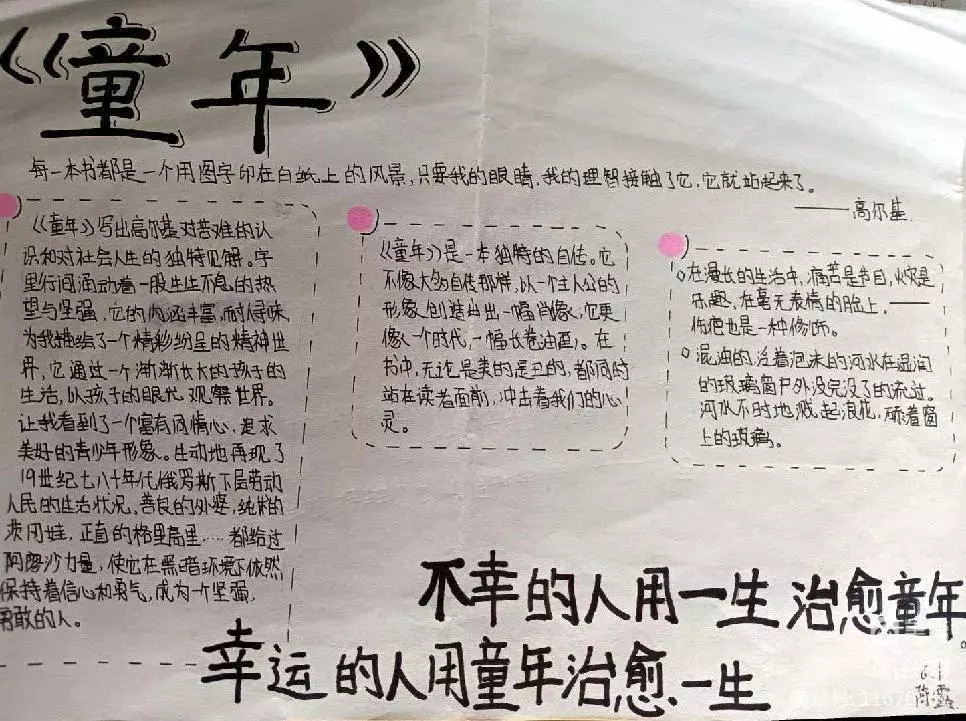 《《童年》》
每一本书都是一个用图字印在白纸上的风景,只要我的眼睛,我的理智接触了它,它就站起来了。
——高尔基.
《童年》写出高尔基对苦难的认
识和对社会人生的独特见解。字
里行间涌动着一股生生不息的热
望与坚强,它的内涵丰富,耐寻味
为我描绘了一个精彩纷呈的精神世
界,它通过一个渐渐长大的孩子的
生活,以孩子的眼光观察世界。
让我看到了一个富有同情心,追求
美好的青少年形象。生动地再现了
19世纪七八十年代俄罗斯下层劳动
人民的生活状况,善良的外婆,纯粹的
茨冈娃,正直的格里高里……都给过
阿廖沙力量,使它在黑暗环境下依然
保持着信心和勇气,成为一个坚强,
勇敢的人。
《童年》是一本独特的自传。它
不像大多自传那样,以一个主人公的
形象,创造出出一幅肖像,它更
像一个时代,一幅长卷油画。在
书中,无论是美的是丑的,都同时
站在读者面前,冲击着我们的心
灵。
在漫长的生活中,痛苦是节日,火灾是
乐趣,在毫无表情的脸上,——
伤疤也是一种修饰。
混油的,泛着泡沫的河水在湿润
的玻璃窗户外没完没了的流过。
河水不时地溅起浪花,舔着窗
上的玻璃。
不幸的人用一生治愈童年。
幸运的人用童年治愈一生
6.1
陈露